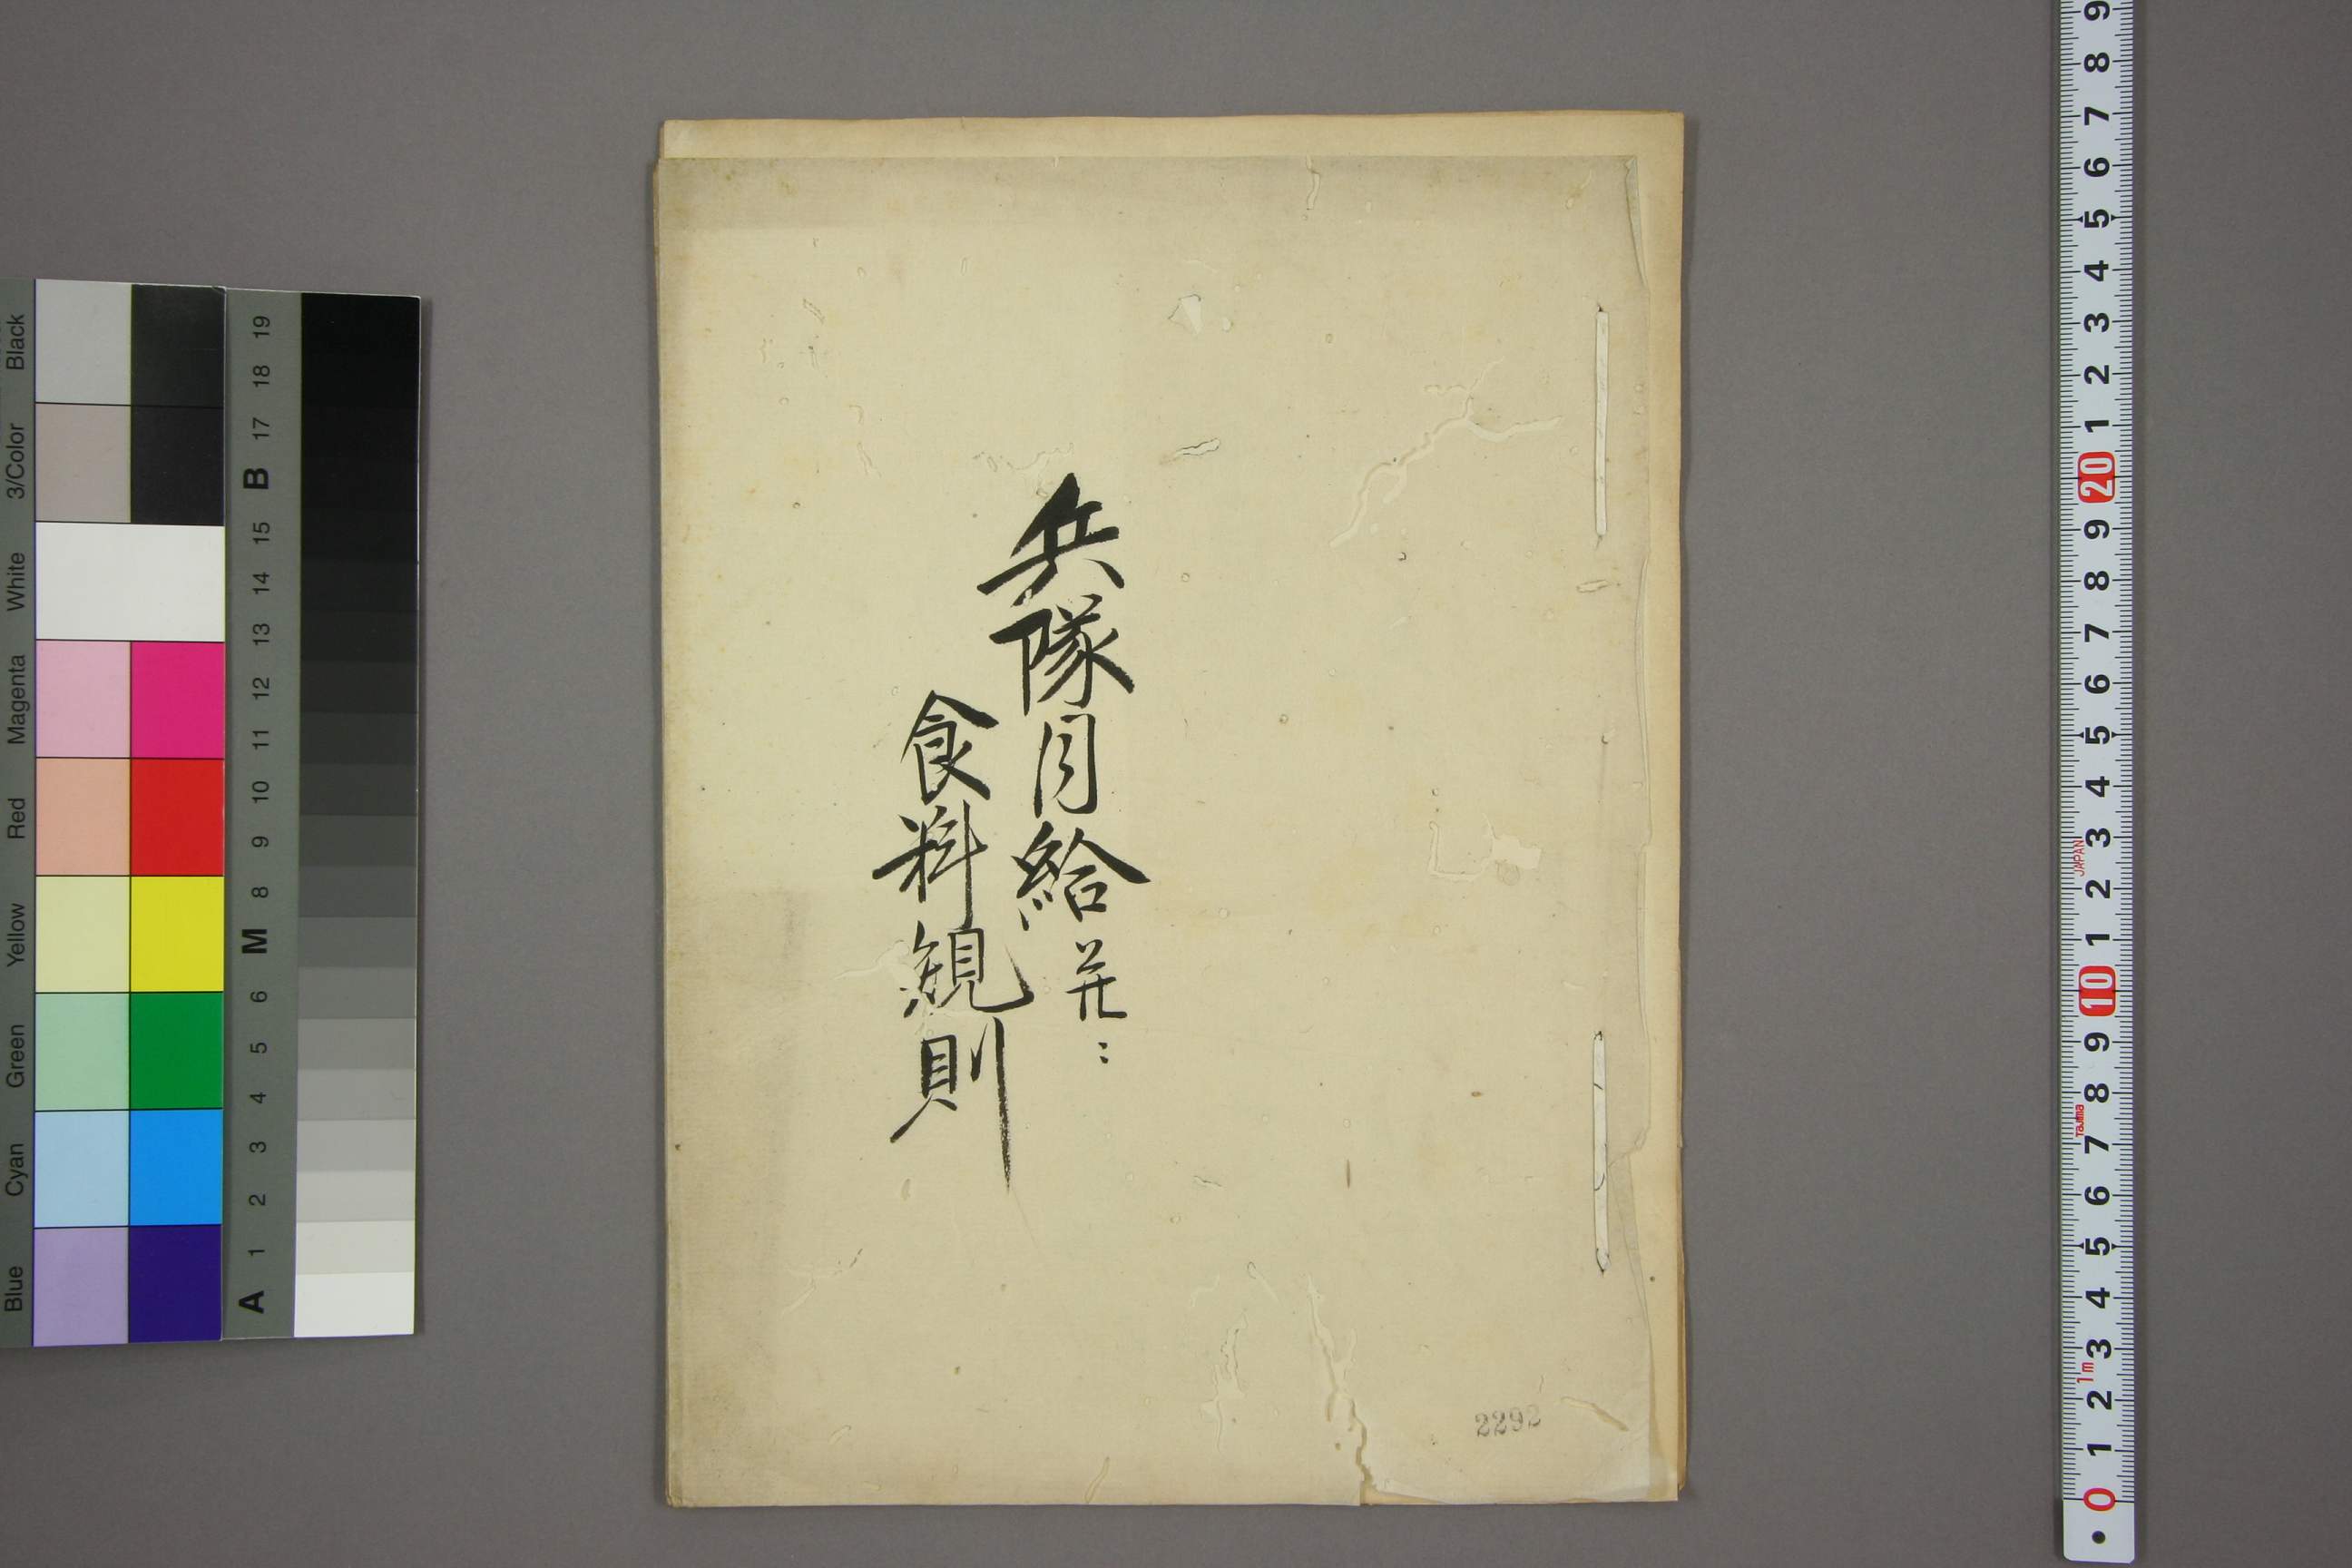 兵隊月給并ニ
食料規則
2292
Blue Cyan Green Yellow Red Magenta White 3/Color Black
A 1 2 3 4 5 6 M 8 9 10 11 12 13 14 15 B 17 18 19
0 1 2 3 4 5 6 7 8 9 10 1 2 3 4 5 6 7 8 9 20 1 2 3 4 5 6 7 8 9
1m Tajima JAPAN